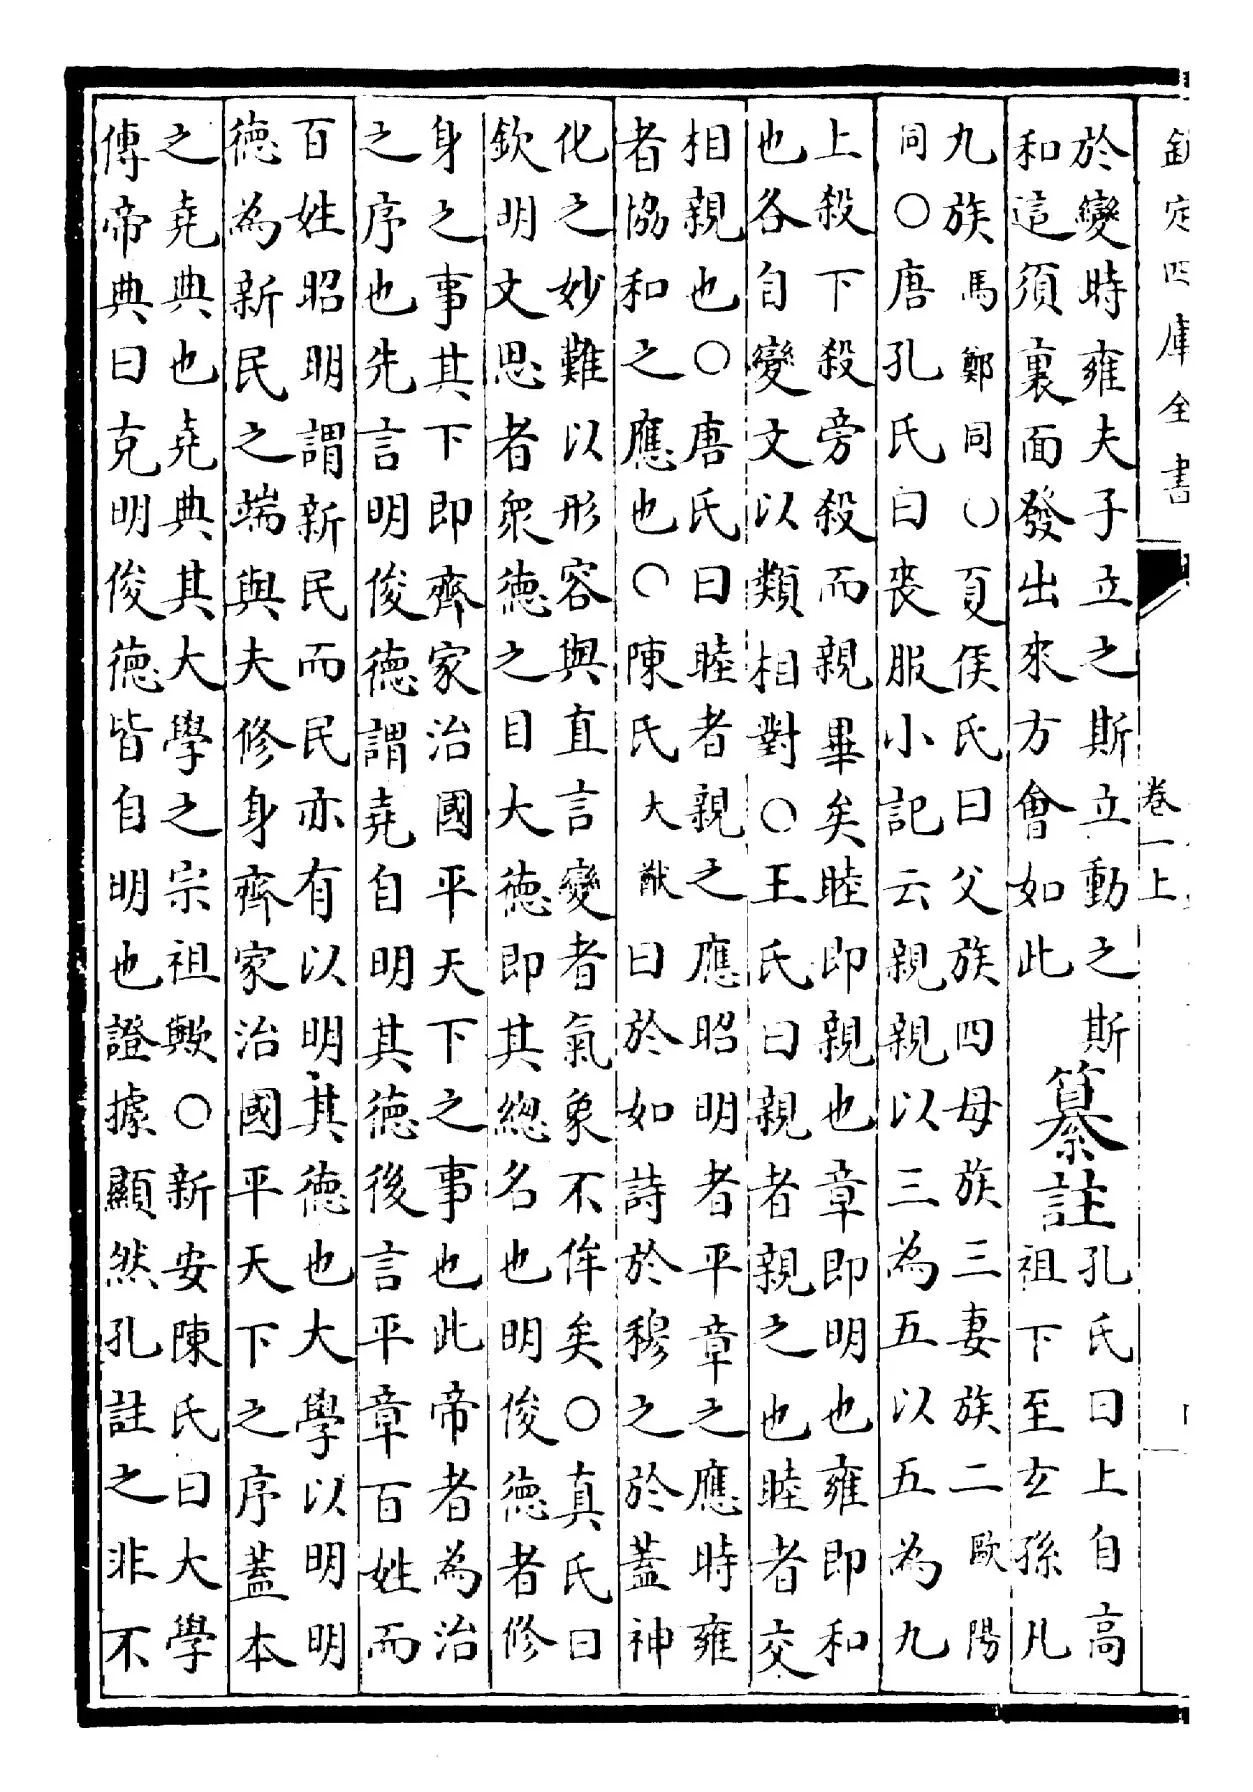 欽定四庫全書
卷一上
於變時雍夫子立之斯立動之斯
和這須裏面發出來方會如此
纂註
孔氏曰上自高
祖下至玄孫凡
九族馬鄭同○夏侯氏曰父族四母族三妻族二歐陽
同○唐孔氏曰喪服小記云親親以三為五以五為九
上殺下殺旁殺而親畢矣睦即親也章即明也雍即和
也各自變文以類相對○王氏曰親者親之也睦者交
相親也○唐氏曰睦者親之應昭明者平章之應時雍
者協和之應也○陳氏大猷曰於如詩於穆之於蓋神
化之妙難以形容與直言變者氣象不侔矣○真氏曰
欽明文思者衆德之目大德即其總名也明俊德者修
身之事其下即齊家治國平天下之事也此帝者為治
之序也先言明俊德謂堯自明其德後言平章百姓而
百姓昭明謂新民而民亦有以明其德也大學以明明
德為新民之端與夫修身齊家治國平天下之序蓋本
之堯典也堯典其大學之宗祖歟○新安陳氏曰大學
傳帝典曰克明俊德皆自明也證據顯然孔註之非不